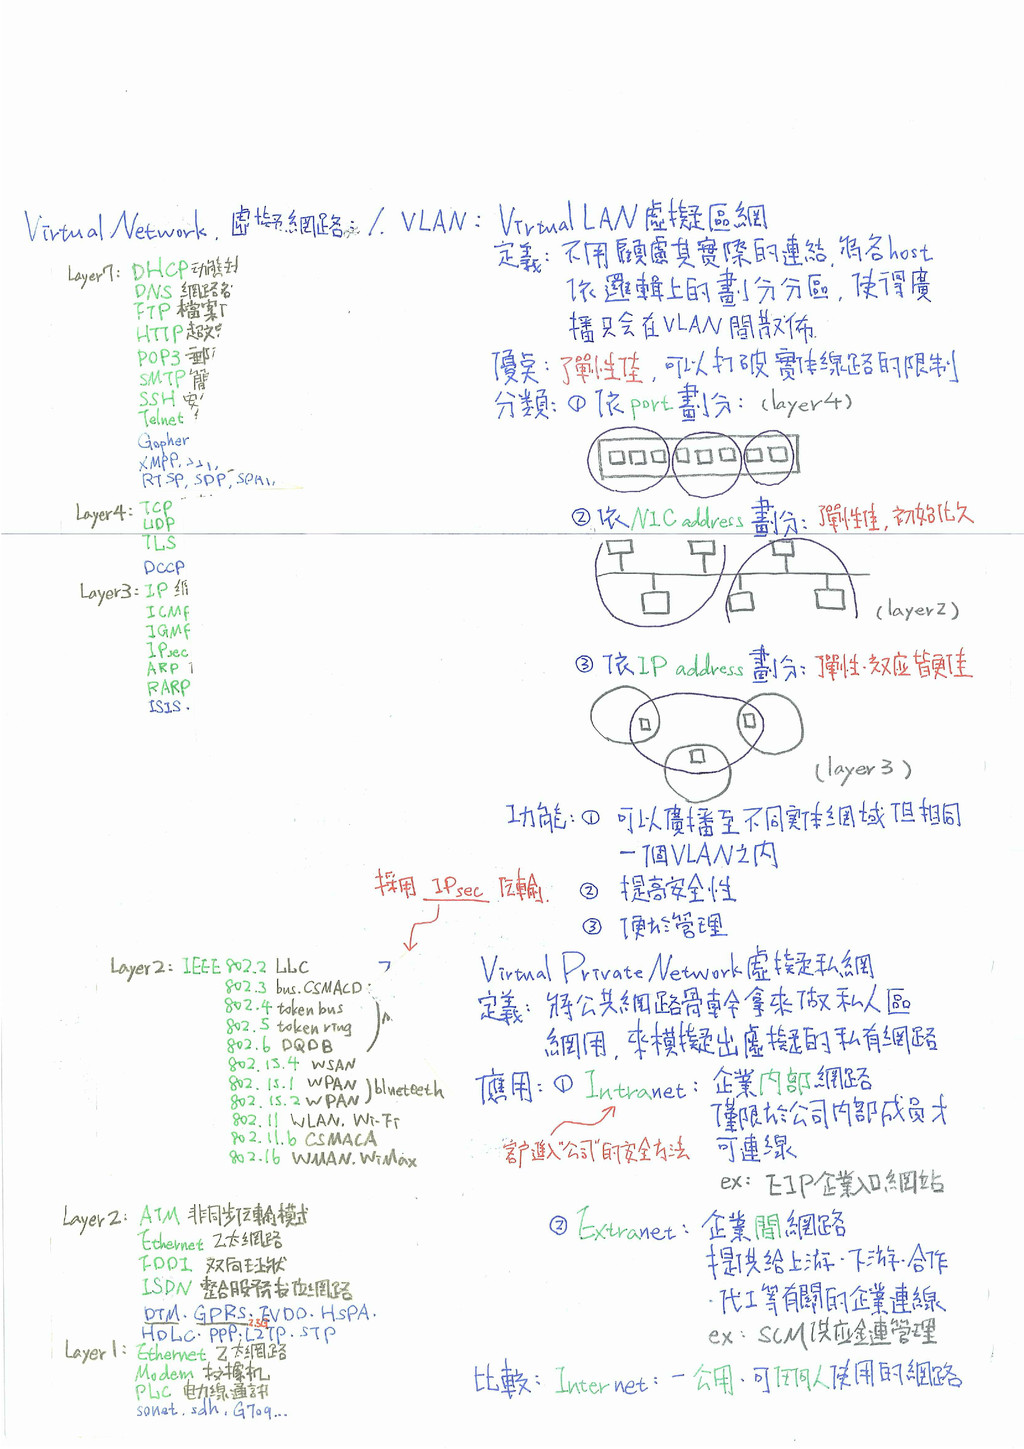 Virtual Network. 虛擬網路: 1. VLAN: Virtual LAN 虛擬區網
定義: 不用顧慮其實際的連結, 將各host
依邏輯上的劃分分區, 使得廣
播只會在VLAN間散佈.
優點: 彈性佳, 可以打破實体線路的限制
分類: ① 依port劃分: (layer4)
② 依NIC address 劃分: 彈性佳, 初始化久
(layer2)
③ 依IP address 劃分: 彈性·效应皆更佳
(layer3)
功能: ① 可以廣播至不同實体網域但相同
一個VLAN之内
② 提高安全性
③ 便於管理
Layer7: DHCP 动態
DNS 網路
FTP 檔案
HTTP 超文
POP3 郵
SMTP 簡
SSH 安
Telnet
Gopher
XMPP,
RTSP, SDP,
Layer4: TCP
UDP
TLS
DCCP
Layer3: IP 網
ICMP
IGMP
IPsec
ARP
RARP
ISIS.
採用 IPsec 伝輸.
Layer2: IEEE 802.2 LLC
802.3 bus.CSMACD
802.4 token bus
802.5 token ring
802.6 DQDB
802.15.4 WSAN
802.15.1 WPAN
802.15.2 WPAN
blueteeth
802.11 WLAN. Wi-Fi
802.11.b CSMACA
802.16 WMAN. WiMax
Virtual Private Network 虛擬私網
定義: 將公共網路骨幹拿來做私人區
網用, 來模擬出虛擬的私有網路
應用: ① Intranet: 企業内部網路
僅限於公司内部成員才
可連線
客户進入"公司"的安全方法
ex: EIP企業入口網站
② Extranet: 企業間網路
提供給上游·下游·合作
·代工等有關的企業連線
ex: SCM供应鏈管理
比較: Internet: 一公用·可任何人使用的網路
Layer2: ATM 非同步伝輸模式
Ethernet 乙太網路
FDDI 双向环狀
ISDN 整合服務数位網路
DTM. GPRS. EVDO. HSPA.
2.5G
HDLC. PPP. L2TP. STP
Layer1: Ethernet 乙太網路
Modem 数據机
PLC 电力線通訊
sonet. sdh. G709...